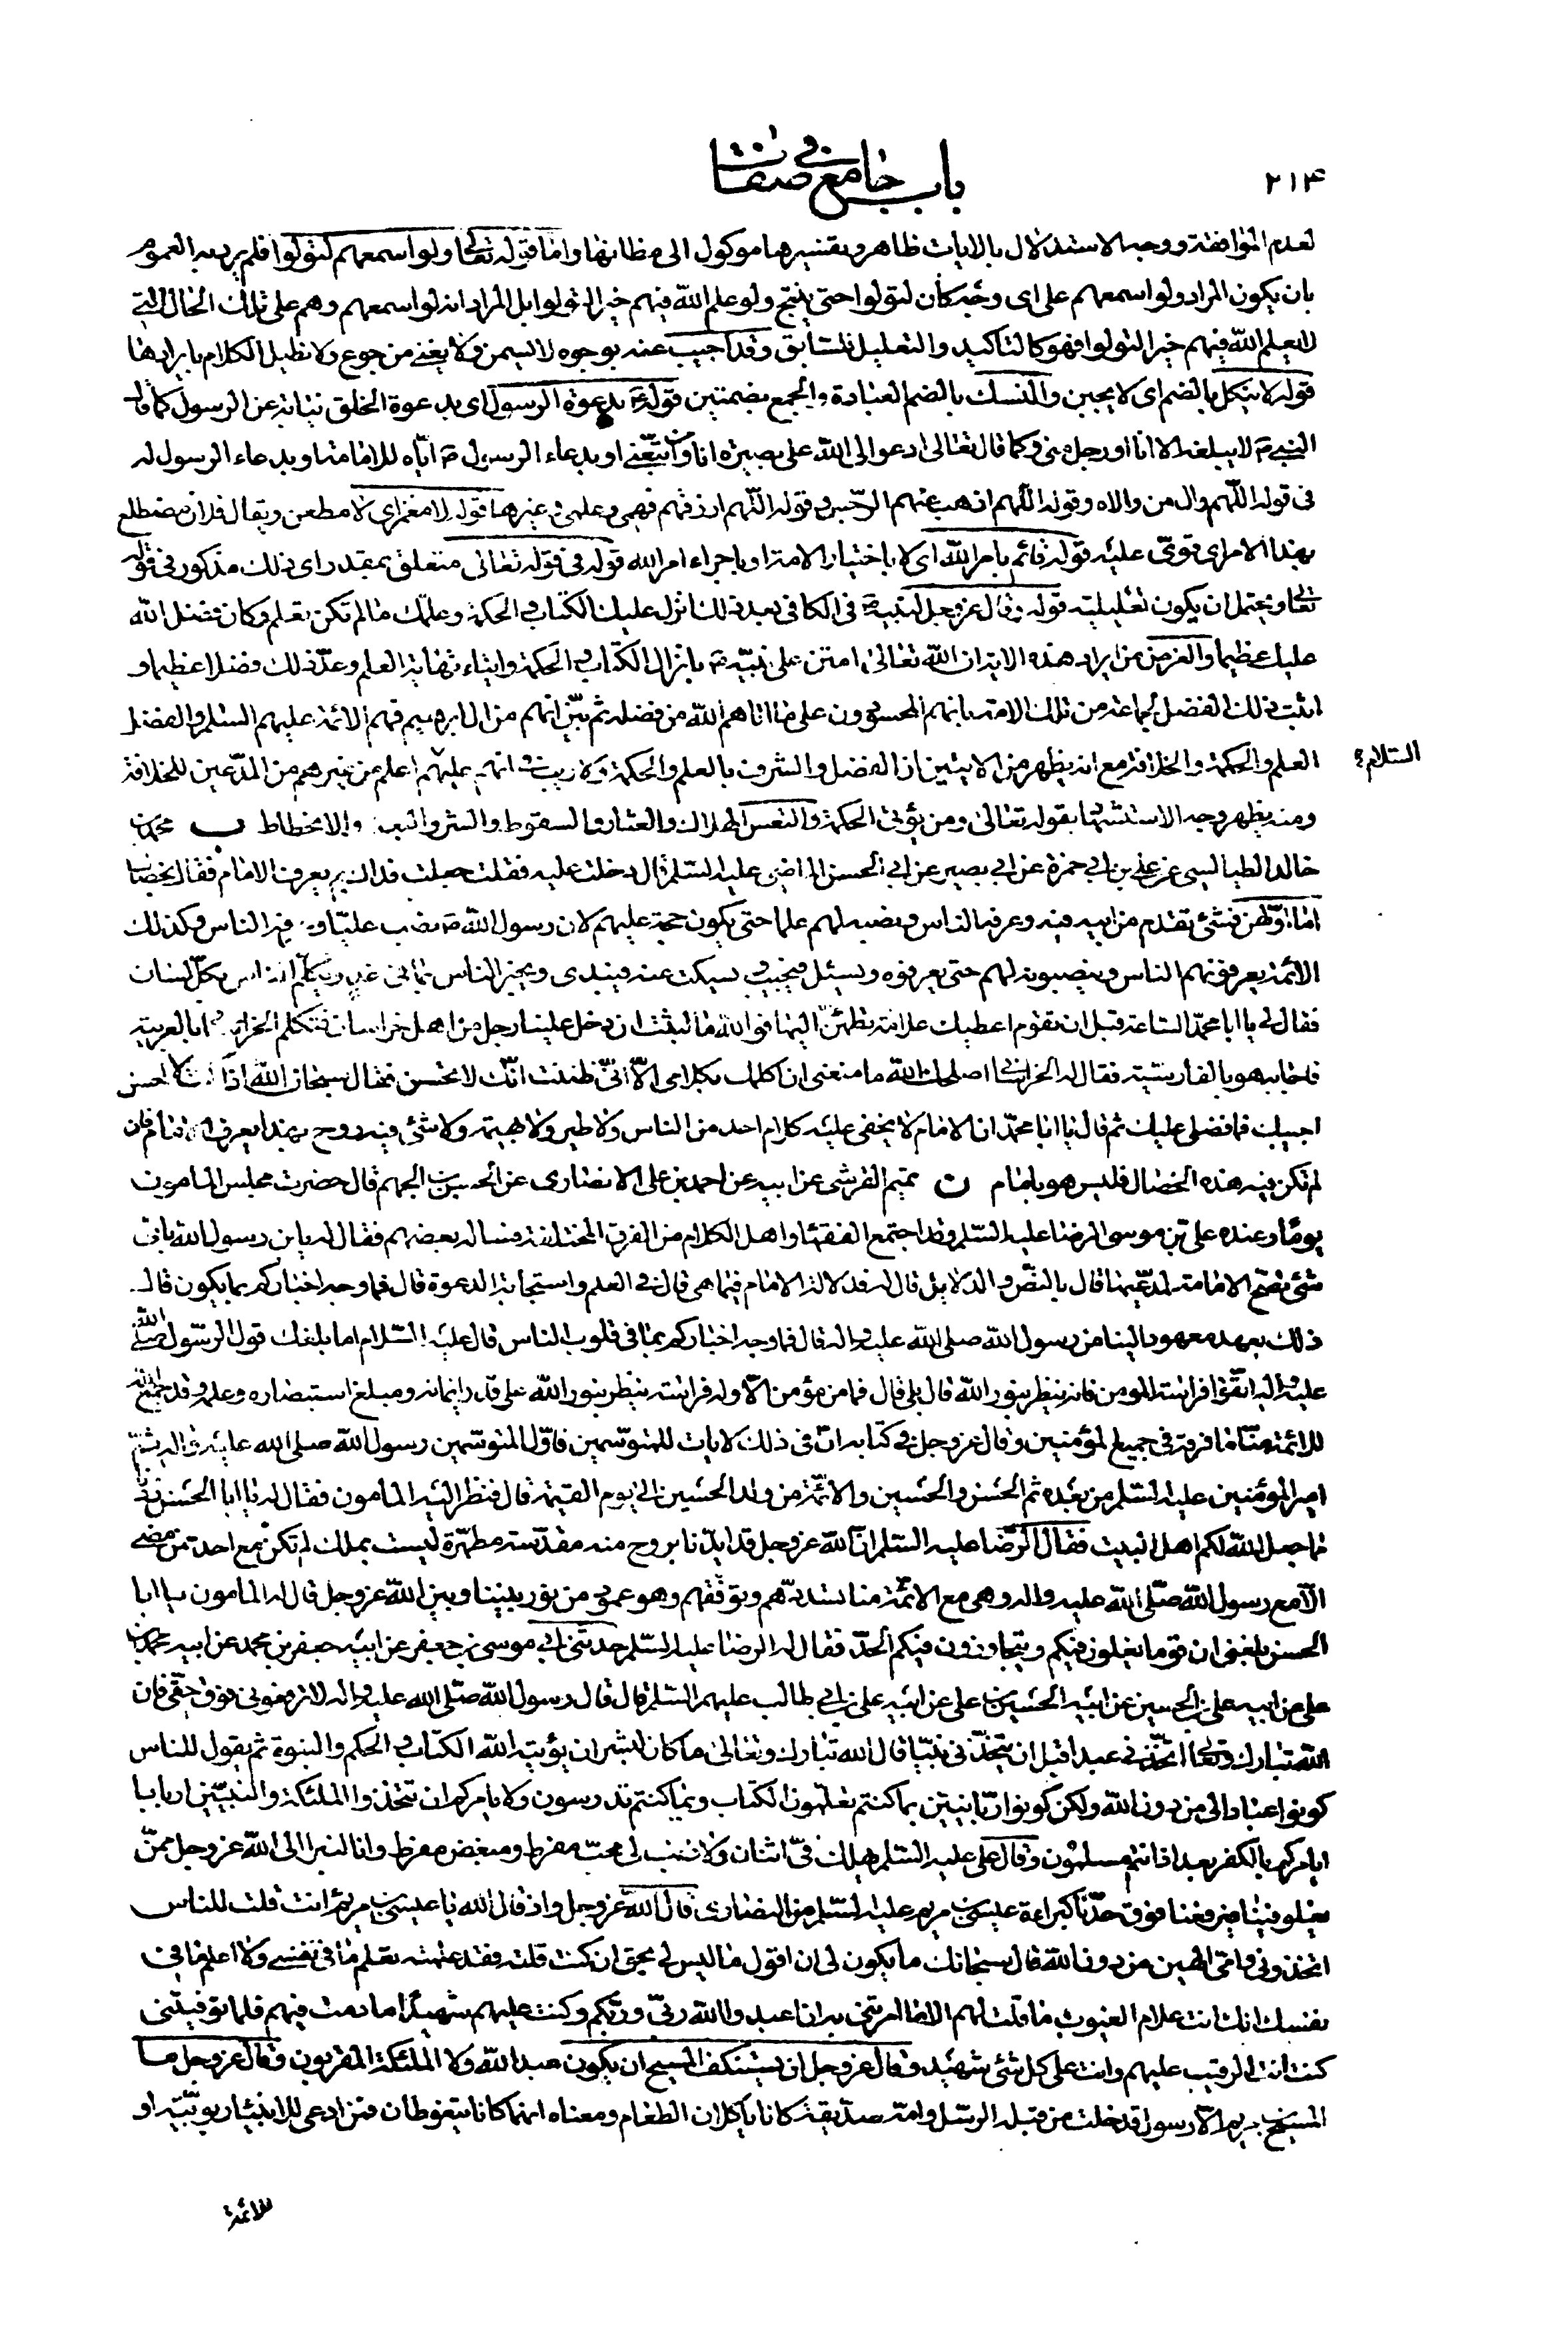 ۲۱۴
باب جامع في صفات
لعدم الموافقة ووجه الاستدلال بالايات ظاهر وتفسيرها موكول الى مظانها واما قوله تعالى ولو اسمعهم لتولوا فلم يرد به العموم
بان يكون المراد ولو اسمعهم على اى وجه كان لتولوا حتى ينتج ولو علم الله فيهم خيرا لتولوا بل المراد انه لو اسمعهم وهم على تلك الحال التي
لا يعلم الله فيهم خيرا لتولوا فهو كالتاكيد والتعليل للسابق وقد اجيب عنه بوجوه لا يسمن ولا يغني من جوع ولا نطيل الكلام بايرادها
قوله لا ينكل بالضم اى لا يجبن والنسك بالضم العبادة والجمع بضمتين قوله بدعوة الرسول اى بدعوة الخلق نيابة عن الرسول كما قال
النبي ص لا يبلغه الا انا او رجل مني وكما قال تعالى ادعو الى الله على بصيرة انا ومن اتبعني او بدعاء الرسول ص اياه للامامة او بدعاء الرسول له
في قوله اللهم وال من والاه وقوله اللهم اذهب عنهم الرجس وقوله اللهم ارزقهم فهمي وعلمي وغيرها قوله لا مغمز اى لا مطعن ويقال فلان مضطلع
بهذا الامر اى قوى عليه قوله قائم بامر الله اى لا باختيار الامة او باجراء امر الله قوله في قوله تعالى متعلق بمقدر اى ذلك مذكور في قوله
تعالى ويحتمل ان يكون تعليلية قوله وقال عز وجل لنبيه في الكافي بعد ذلك انزل عليك الكتاب والحكمة وعلمك ما لم تكن تعلم وكان فضل الله
عليك عظيما والغرض من ايراد هذه الاية ان الله تعالى امتن على نبيه ص بانزال الكتاب والحكمة وايتاء نهاية العلم وعد ذلك فضلا عظيما و
اثبت ذلك الفضل لجماعة من تلك الامة بانهم المحسودون على ما اتاهم الله من فضله ثم بين انهم من ال ابرهيم فهم الائمة عليهم السلم والفضل
العلم والحكمة والخلافة مع انه يظهر من الايتين ان الفضل والشرف بالعلم والحكمة ولا ريب في انهم عليهم اعلم من غيرهم من المدعين للخلافة
السلام
ومنه يظهر وجه الاستشهاد بقوله تعالى ومن يؤتى الحكمة والتعس الهلاك والعثار والسقوط والشر والبعد والانحطاط ب محمد بن
خالد الطيالسي عن علي بن ابي حمزة عن ابي بصير عن ابي الحسن الماضي عليه السلم قال دخلت عليه فقلت جعلت فداك بم يعرف الامام فقال بخصال
اما اولهن فشئ تقدم من ابيه فيه وعرفه الناس ونصبه لهم علما حتى يكون حجة عليهم لان رسول الله ص نصب عليا وعرفه الناس وكذلك
الائمة يعرفونهم الناس وينصبونه لهم حتى يعرفوه ويسئل فيجيب ويسكت عنه فيبتدى ويخبر الناس بما في غد ويكلم الناس بكل لسان
فقال لي يا ابا محمد الساعة قبل ان تقوم اعطيك علامة تطمئن اليها فوالله ما لبثت ان دخل علينا رجل من اهل خراسان فتكلم الخراساني بالعربية
فاجابه هو بالفارسية فقال له الخراساني اصلحك الله ما منعني ان اكلمك بكلامي الا اني ظننت انك لا تحسن فقال سبحان الله اذا كنت لا احسن
اجيبك فما فضلي عليك ثم قال يا ابا محمد ان الامام لا يخفى عليه كلام احد من الناس ولا طير ولا بهيمة ولا شئ فيه روح بهذا يعرف الامام فان
لم تكن فيه هذه الخصال فليس هو بامام ن تميم القرشي عن ابيه عن احمد بن على الانصارى عن الحسن بن الجهم قال حضرت مجلس المامون
يوما وعنده على بن موسى الرضا عليه السلم وقد اجتمع الفقهاء واهل الكلام من الفرق المختلفة فساله بعضهم فقال له يا بن رسول الله باى
شئ تصح الامامة لمدعيها قال بالنص والدلايل قال له فدلالة الامام فيما هي قال في العلم واستجابة الدعوة قال فما وجه اخباركم بما يكون قال
ذلك بعهد معهود الينا من رسول الله صلى الله عليه واله قال فما وجه اخباركم بما في قلوب الناس قال عليه السلام اما بلغك قول الرسول صلى الله
عليه واله اتقوا فراسة المومن فانه ينظر بنور الله قال بلى قال فما من مؤمن الا وله فراسة ينظر بنور الله على قدر ايمانه ومبلغ استبصاره وعلمه وقد جمع الله
للائمة منا ما فرقه في جميع المؤمنين وقال عز وجل في كتابه ان في ذلك لايات للمتوسمين فاول المتوسمين رسول الله صلى الله عليه واله ثم
امير المؤمنين عليه السلم من بعده ثم الحسن والحسين والائمة من ولد الحسين الى يوم القيمة قال فنظر اليه المامون فقال له يا ابا الحسن زدنا
مما جعل الله لكم اهل البيت فقال الرضا عليه السلم ان الله عز وجل قد ايدنا بروح منه مقدسة مطهرة ليست بملك لم تكن مع احد ممن مضى
الا مع رسول الله صلى الله عليه واله وهي مع الائمة منا تسددهم وتوفقهم وهو عمود من نور بيننا وبين الله عز وجل قال له المامون يا ابا
الحسن بلغني ان قوما يغلون فيكم ويتجاوزون فيكم الحد فقال له الرضا عليه السلم حدثني ابي موسى بن جعفر عن ابيه جعفر بن محمد عن ابيه محمد بن
على عن ابيه على بن الحسين عن ابيه الحسين بن على عن ابيه على بن ابي طالب عليهم السلم قال قال رسول الله صلى الله عليه واله لا ترفعوني فوق حقي فان
الله تبارك وتعالى اتخذني عبدا قبل ان يتخذني نبيا قال الله تبارك وتعالى ما كان لبشر ان يؤتيه الله الكتاب والحكم والنبوة ثم يقول للناس
كونوا عبادا لى من دون الله ولكن كونوا ربانيين بما كنتم تعلمون الكتاب وبما كنتم تدرسون ولا يامركم ان تتخذوا الملئكة والنبيين اربابا
ايامركم بالكفر بعد اذ انتم مسلمون وقال على عليه السلم يهلك في اثنان ولا ذنب لى محب مفرط ومبغض مفرط وانا لنبرا الى الله عز وجل ممن
يغلو فينا فيرفعنا فوق حدنا كبراءة عيسى بن مريم عليه السلم من النصارى قال الله عز وجل واذ قال الله يا عيسى بن مريم ءانت قلت للناس
اتخذوني وامي الهين من دون الله قال سبحانك ما يكون لى ان اقول ما ليس لى بحق ان كنت قلته فقد علمته تعلم ما في نفسي ولا اعلم ما في
نفسك انك انت علام الغيوب ما قلت لهم الا ما امرتني به ان اعبدوا الله ربي وربكم وكنت عليهم شهيدا ما دمت فيهم فلما توفيتني
كنت انت الرقيب عليهم وانت على كل شئ شهيد وقال عز وجل لن يستنكف المسيح ان يكون عبدا لله ولا الملئكة المقربون وقال عز وجل ما
المسيح بن مريم الا رسول قد خلت من قبله الرسل وامه صديقة كانا ياكلان الطعام ومعناه انهما كانا يتغوطان فمن ادعى للانبياء ربوبية او
للائمة